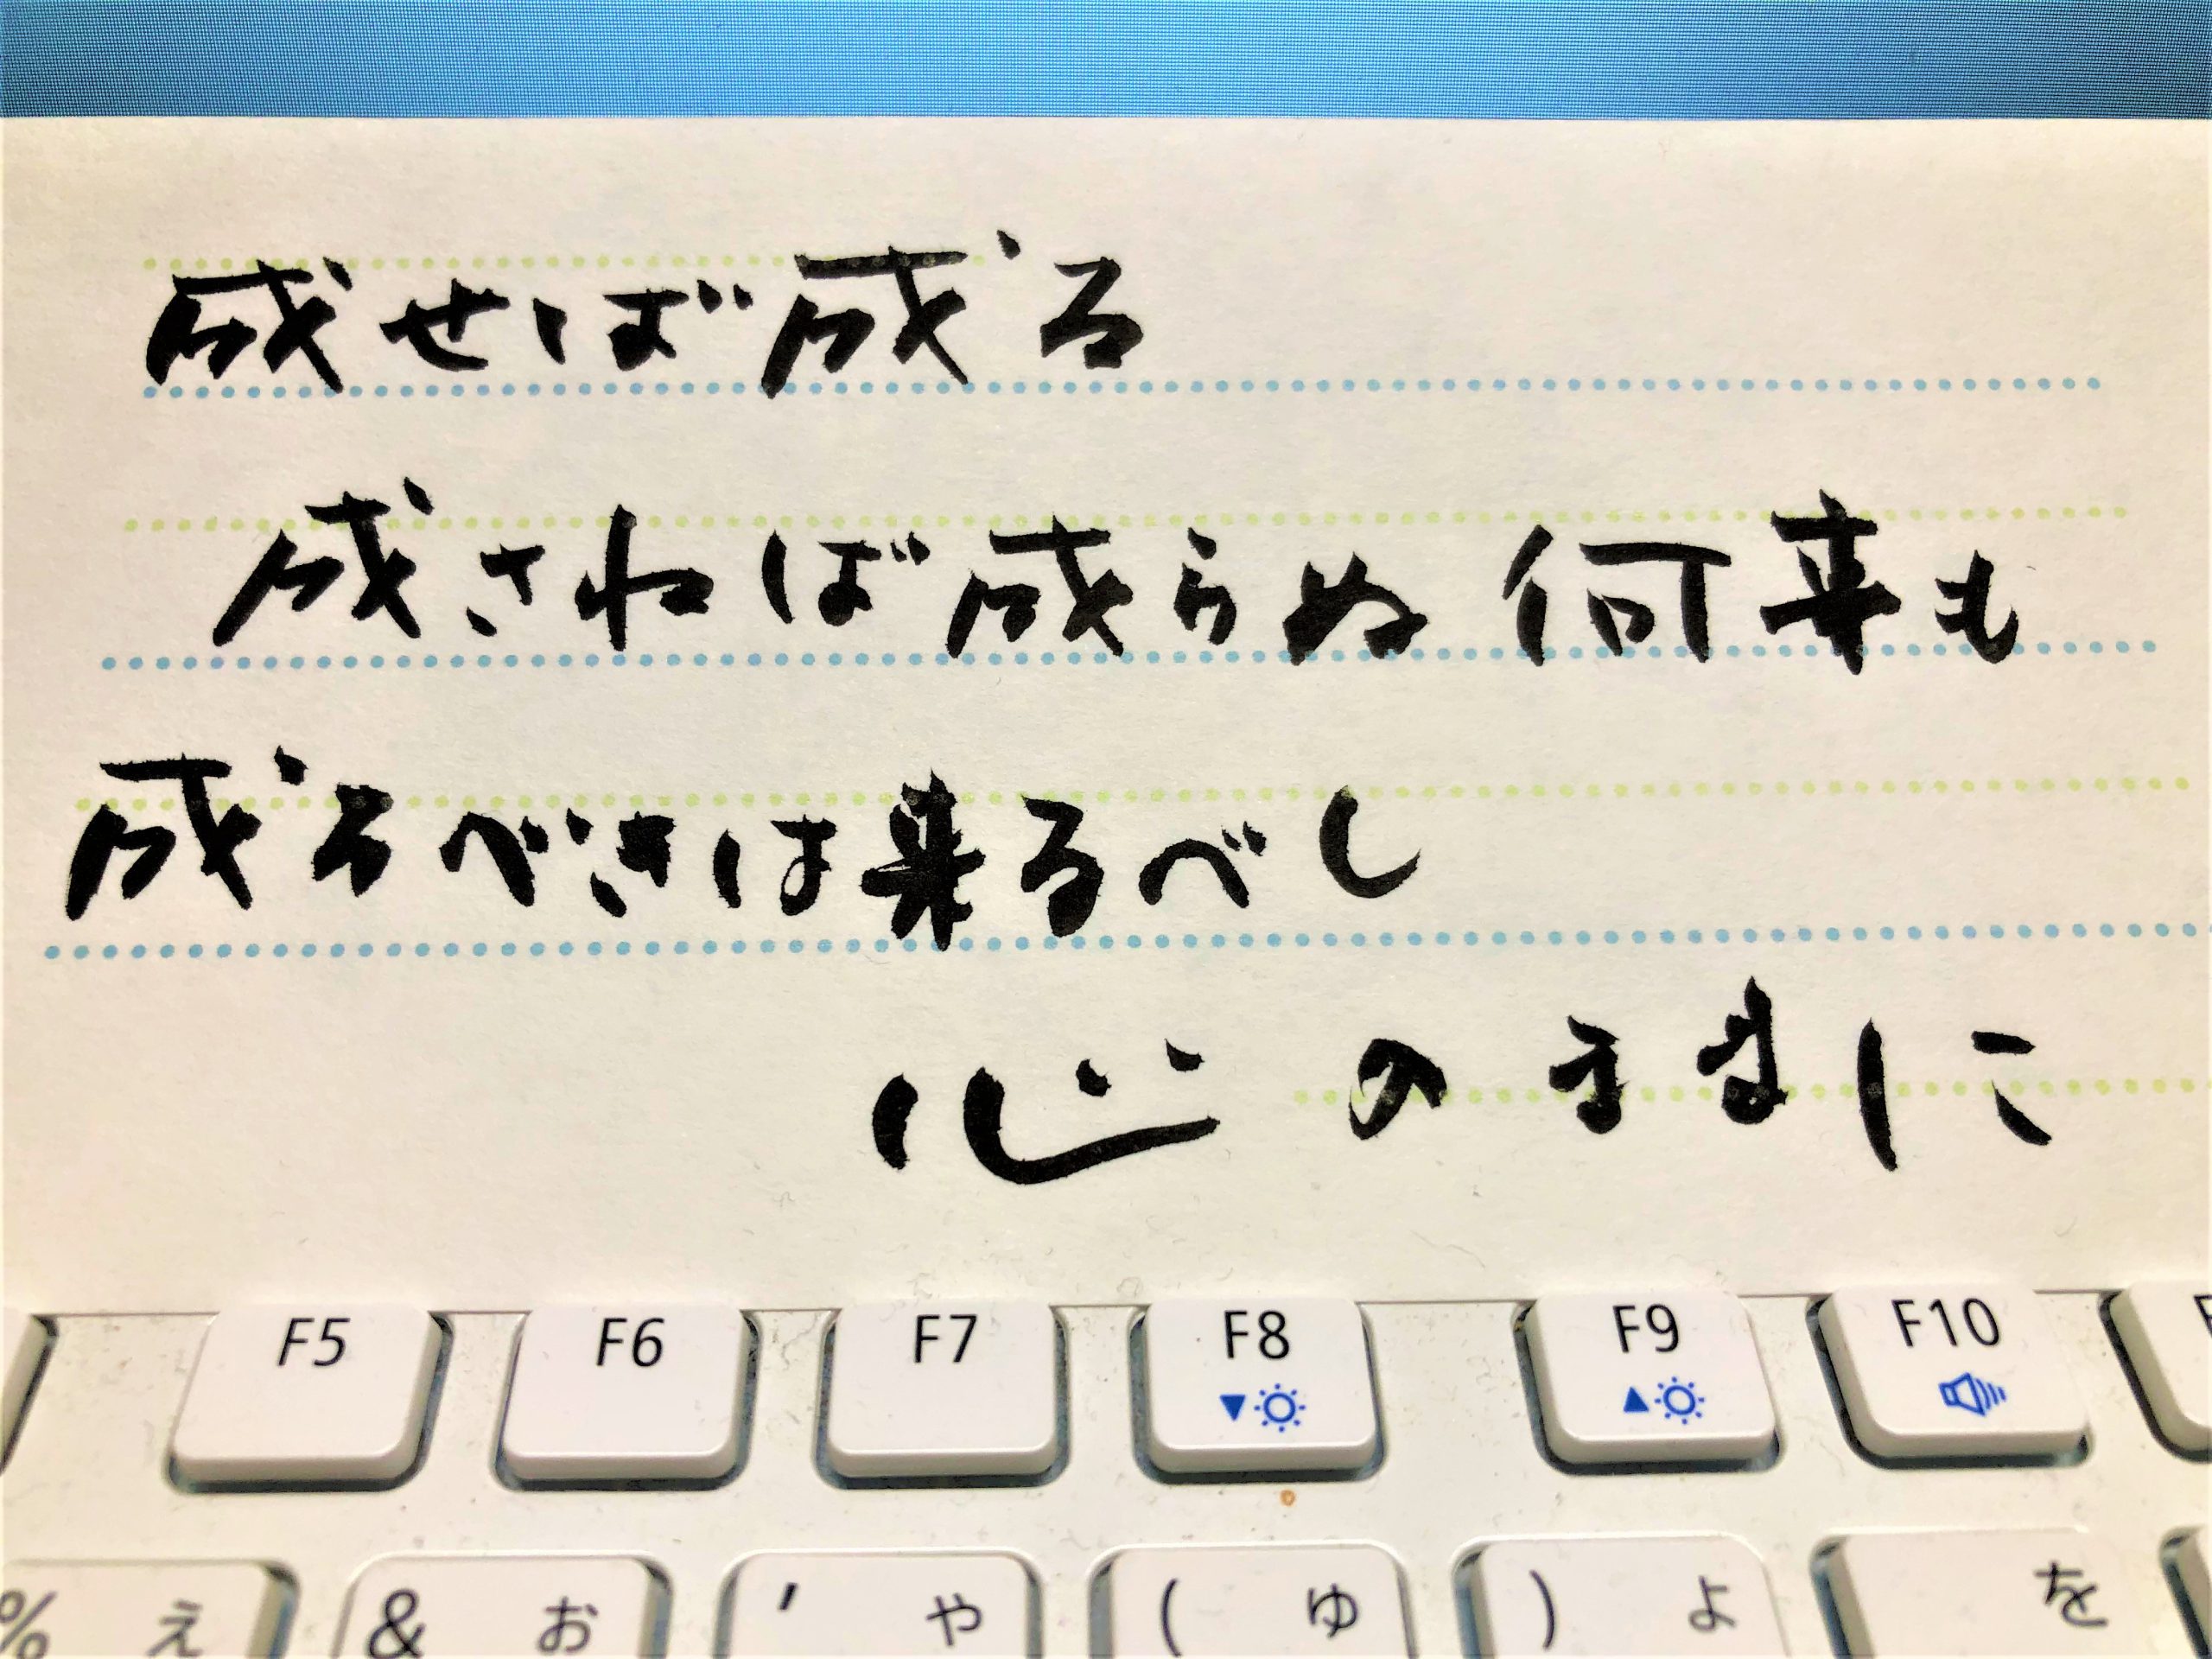 成せば成る
成さねば成らぬ何来も
成るべきは来るべし
心のままに
F5 F6 F7 F8 F9 F10
% え & お ' や ( ゆ ) よ を